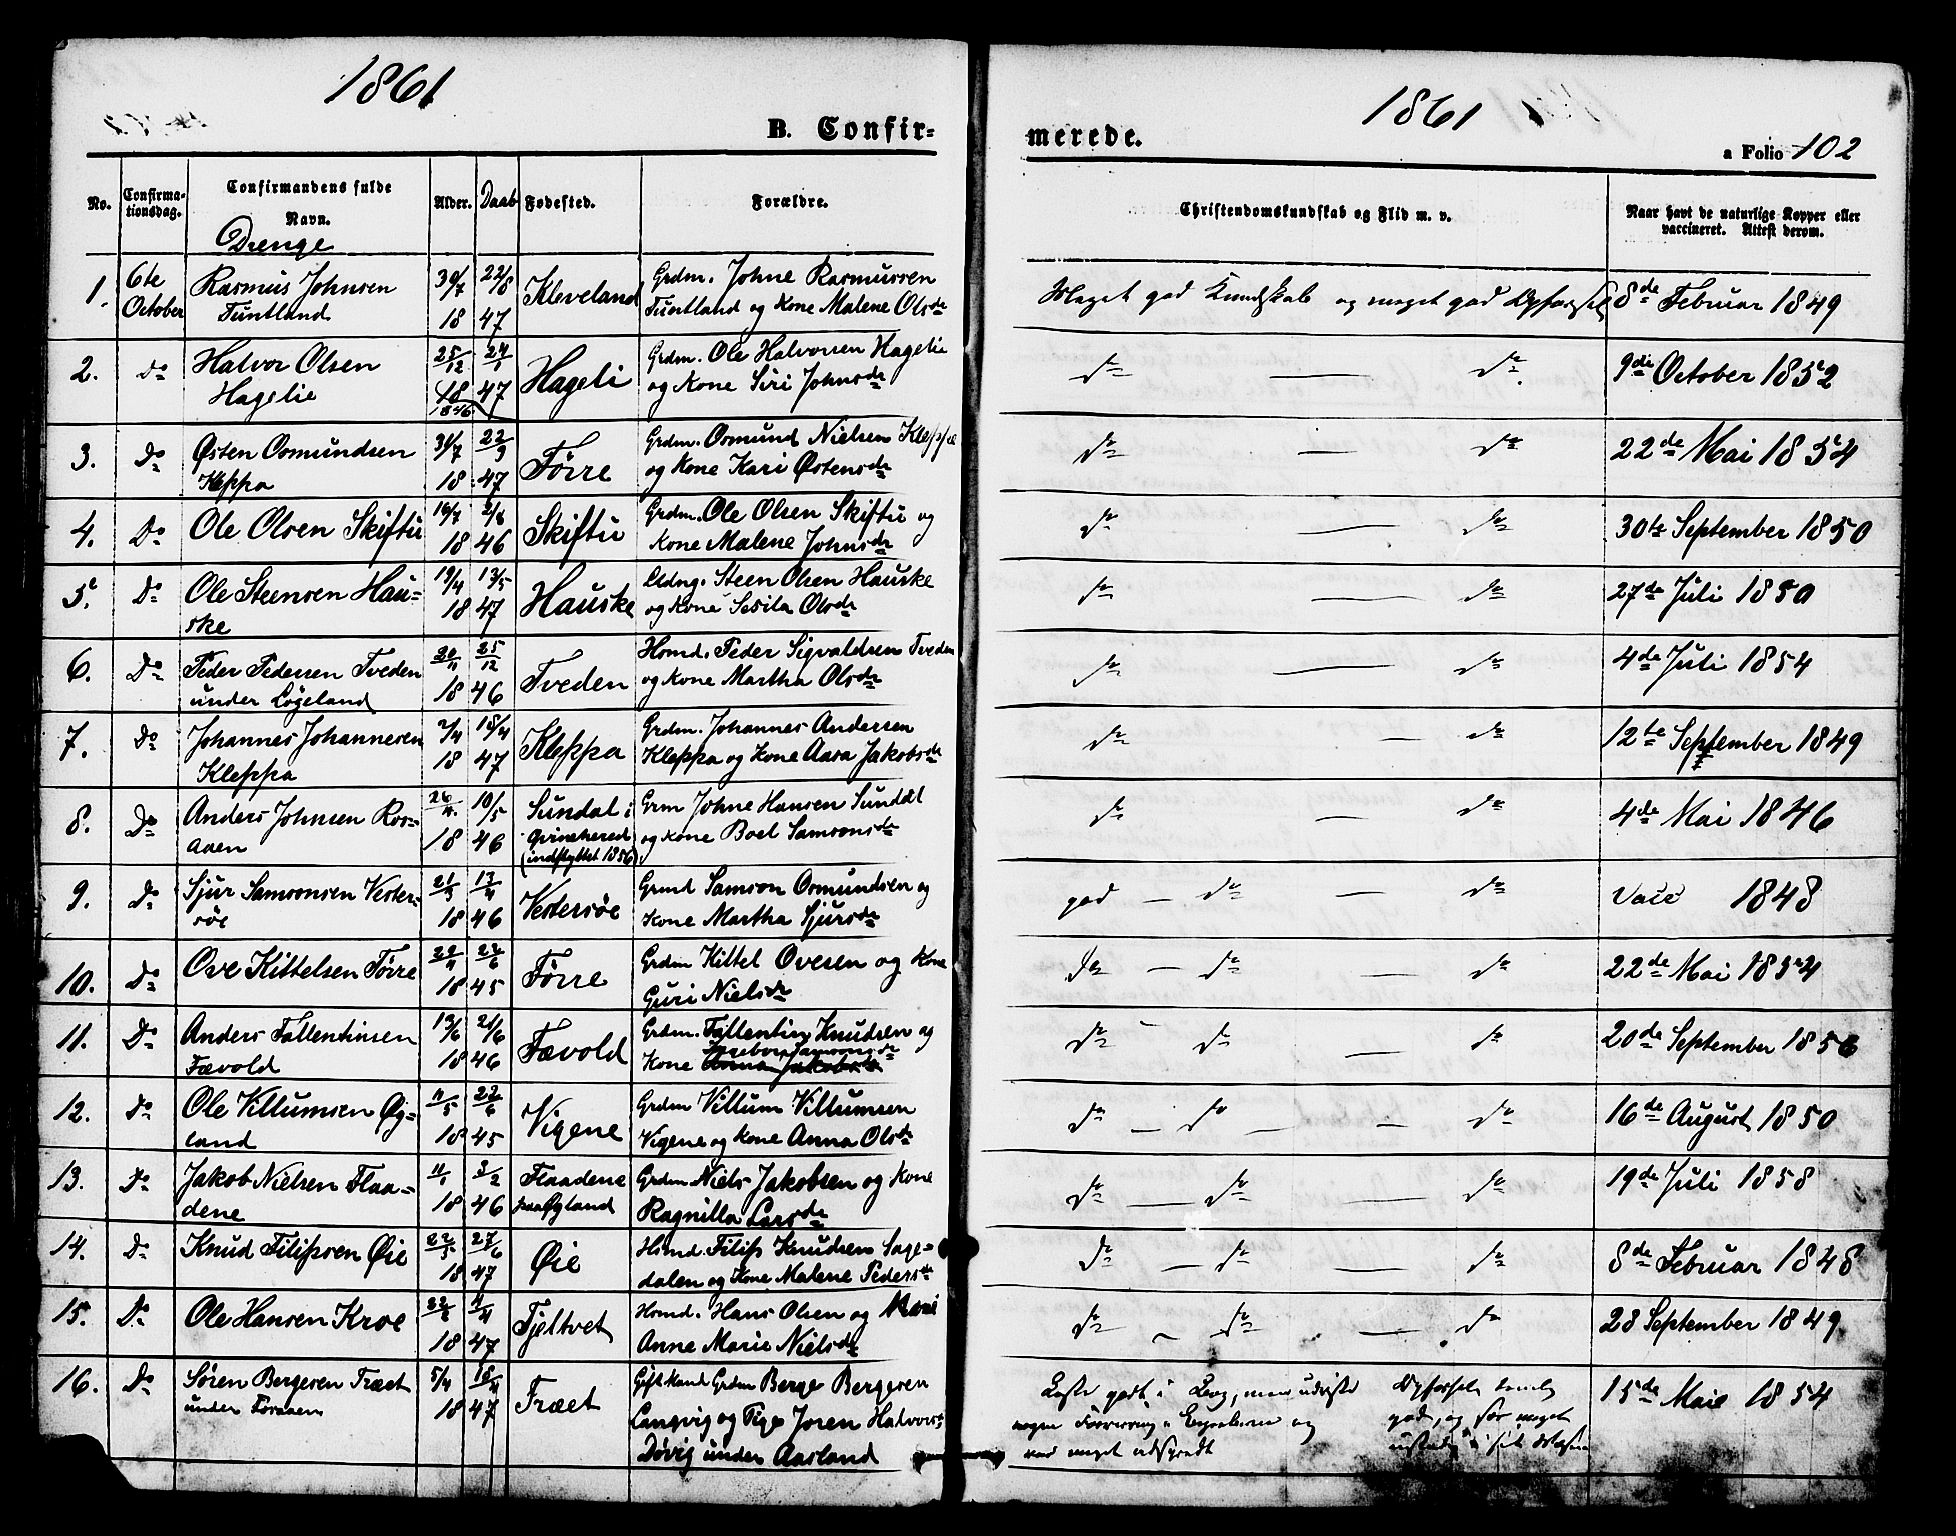 1861
B. Confir-
No. Confirma-tionsdag. Confirmandens fulde Navn. Alder. Daab Fødested. Forældre.
Drenge
1. 6te October Rasmus Johnsen Tuntland 30/7 18 22/8 47 Kleveland Grdm. Johne Rasmussen
Tuntland og Kone Malene Olsdr
2. Do Halvor Olsen Hagelie 25/12 18 1846 24/1 47 Hageli Grdm. Ole Halvorsen Hagelie
og Kone Siri Johnsdr
3. Do Østen Osmundsen Kleppa 31/7 18 22/9 47 Tørre Grdm. Osmund Nielsen Kleppe
og Kone Kari Østensdr
4. Do Ole Olsen Skiftu 16/7 18 2/8 46 Skiftu Grdm. Ole Olsen Skiftu og
Kone Malene Johnsdr
5. Do Ole Steensen Hau-
ske 19/4 18 13/5 47 Hauske Ldng. Steen Olsen Hauske
og Kone Sesila Olsdr
6. Do Peder Pedersen Tveden
under Løgeland 20/11 18 25/12 46 Tveden Hsmd. Peder Sigvaldsen Tveden
og Kone Martha Olsdr
7. Do Johannes Johannesen
Kleppa 2/4 18 18/4 47 Kleppa Grdm. Johannes Andersen
Kleppa og Kone Aasa Jakobsdr
8. Do Anders Johnsen Ros-
aaen 26/4 18 10/5 46 Sundal i
Qvineherred
(indflyttet 1856) Grm Johne Hansen Sundal
og Kone Boel Samsonsdr
9. Do Sjur Samsonsen Vester-
søe 21/3 18 13/4 46 Vestersøe Grmd Samson Osmundsen og
Kone Martha Sjursdr
10. Do Ove Kittelsen Tørre 22/4 18 22/6 45 Tørre Grdm Kittel Ovesen og Kone
Guri Nielsdr
11. Do Anders Fallentinsen
Fævold 13/6 18 21/6 46 Fævold Grdm. Fallentin Knudsen og
Ingebor Samsonsdr
Kone
12. Do Ole Villumsen Øg-
land 11/5 18 22/6 45 Vigene Grdm Villum Villumsen
Vigene og Kone Anna Olsdr
13. Do Jakob Nielsen Flaa-
dene 11/1 18 3/2 46 Flaadene
paa Øgland Grdm Niels Jakobsen og Kone
Ragnilla Larsdr
14. Do Knud Filipsen Øie 22/5 18 27/6 47 Øie Hsmd. Filip Knudsen Sage-
dalen og Kone Malene Pedersdr
15. Do Ole Hansen Kroe 18 47 Fjeltvet Hsmd. Hans Olsen og Kone
Anne Marie Nielsdr
16. Do Søren Bergesen Træet
under Foraaen 5/4 18 18/4 47 Træet Gift Mand Grdm Berge Bergesen
Langvig og Pige Joren Halvorsdr
Døvig under Aarland
1861
merede.
a Folio 102
Christendomskundskab og Flid m. v. Naar havt de naturlige Kopper eller
vaccineret. Attest derom.
Meget god Kundskab og meget god Opførsel 8de Februar 1849
do — do. 9de October 1852
do — do 22de Mai 1854
do — do 30te September 1850
do — do 27de Juli 1850
do — do 4de Juli 1854
do — do 12te September 1849
do — do 4de Mai 1846
god — do — do Vacc 1848
do — do — do 22de Mai 1854
do — do — do 20de September 1856
do — do — do 16de August 1850
do — do — do 19de Juli 1858
do — do — do 8de Februar 1848
do — do — do 28 September 1849
Læste godt i Bog, men udviste Opførsel temlig 15de Maie 1854
nogen Forvirring i Begreberne og god, og før meget
var meget adspredt ustadig i sit Væsen